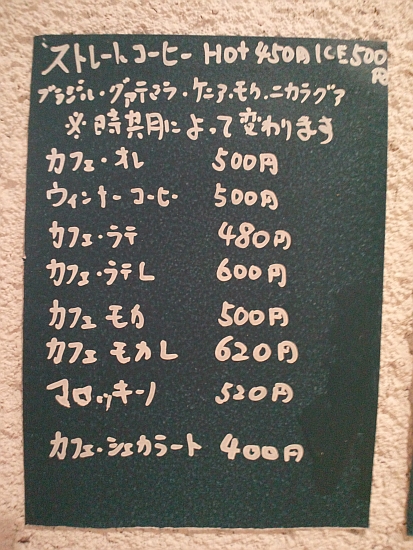 ストレートコーヒー HOt 450円 ICE 500円
ブラジル・グァテマラ・ケニア・モカ・ニカラグア
※時期によって変わります
カフェ・オレ 500円
ウィンナーコーヒー 500円
カフェ・ラテ 480円
カフェ・ラテL 600円
カフェ モカ 500円
カフェ モカL 620円
マロッキーノ 520円
カフェ・シェカラート 400円